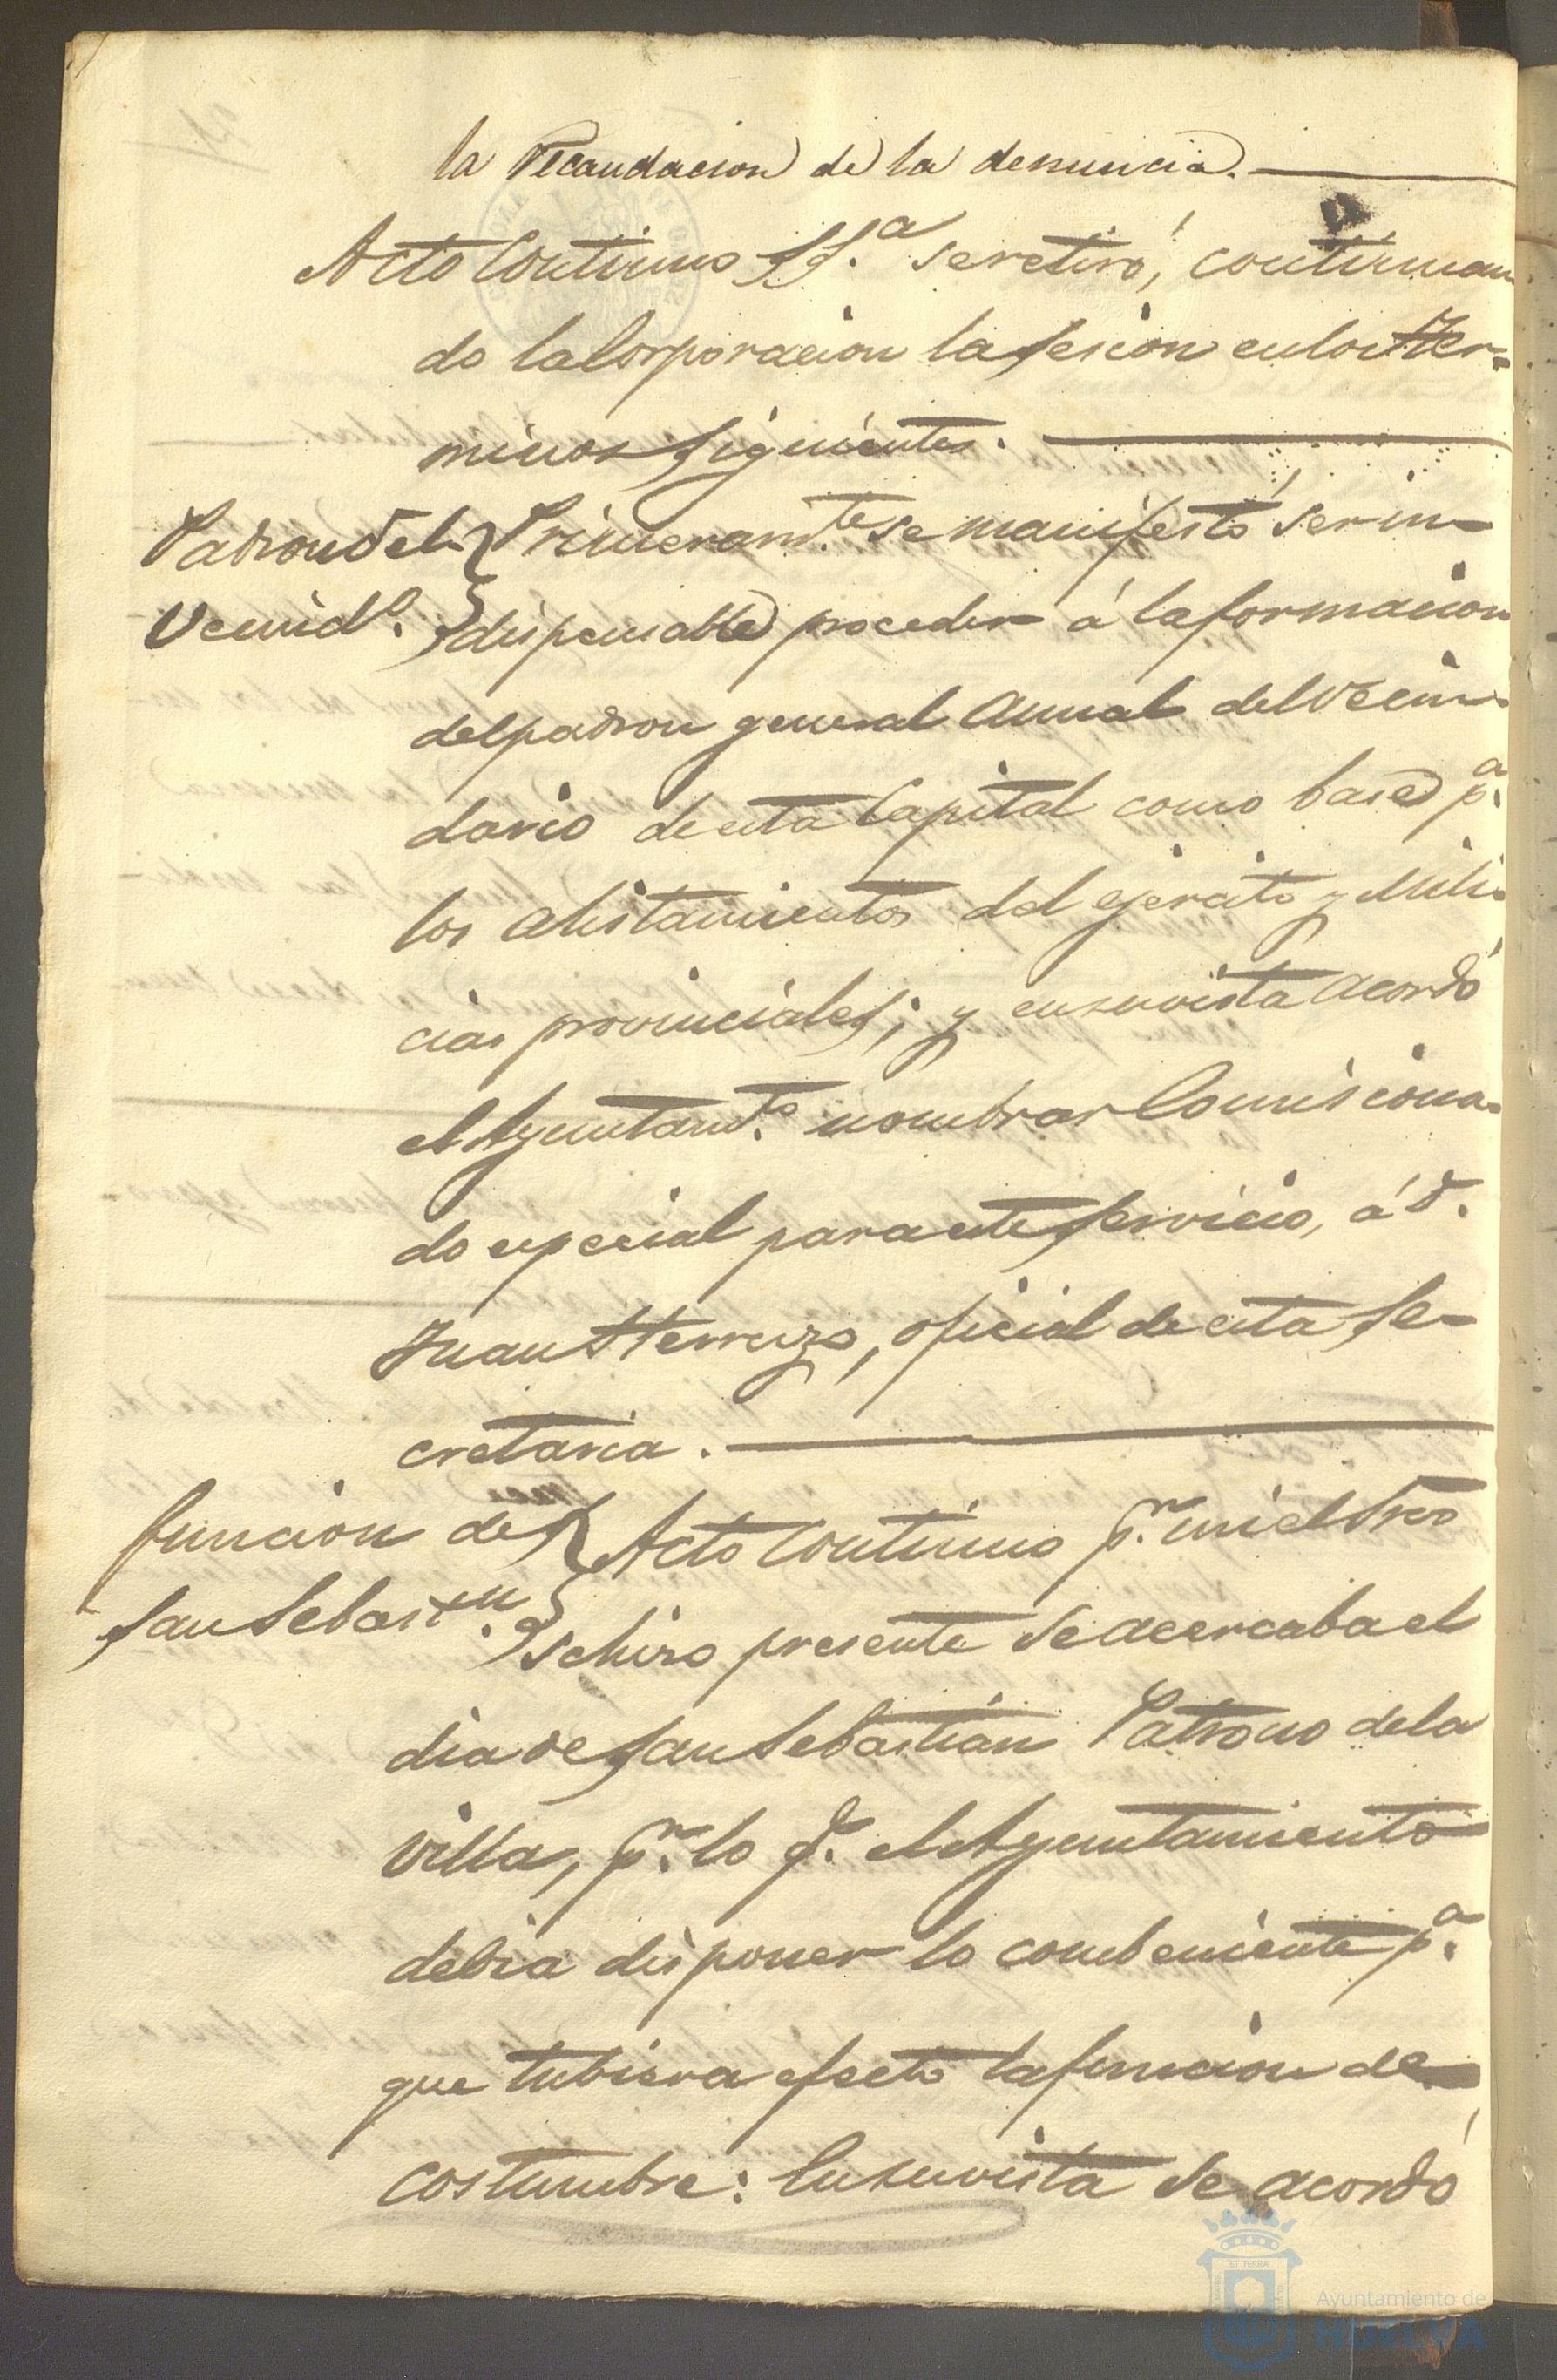 la Recaudacion de la denuncia.
Acto Continuo S.S.ª se retiró, continuan
do la Corporacion la sesion en los ter-
minos siguientes.
Padron del
Vecind.º
Primeram.te se manifestó ser in-
dispensable proceder á la formacion
del padron general Anual del Vecin-
dario de esta Capital como base p.a
los Alistamientos del ejercito y Mili-
cias provinciales; y en su vista acordó
el Ayuntam.to nombrar Comisiona-
do especial para este servicio, á D.
Juan Herrezo, oficial de esta Se-
cretaria.
Funcion de
San Sebast.n
Acto Continuo p.r mi el Srio
se hizo presente se acercaba el
dia de San Sebastián Patrono de la
Villa, p.r lo q.e el Ayuntamiento
debia disponer lo combeniente p.a
que tubiera efecto la funcion de
costumbre: En su vista se acordó
Ayuntamiento de
HUELVA